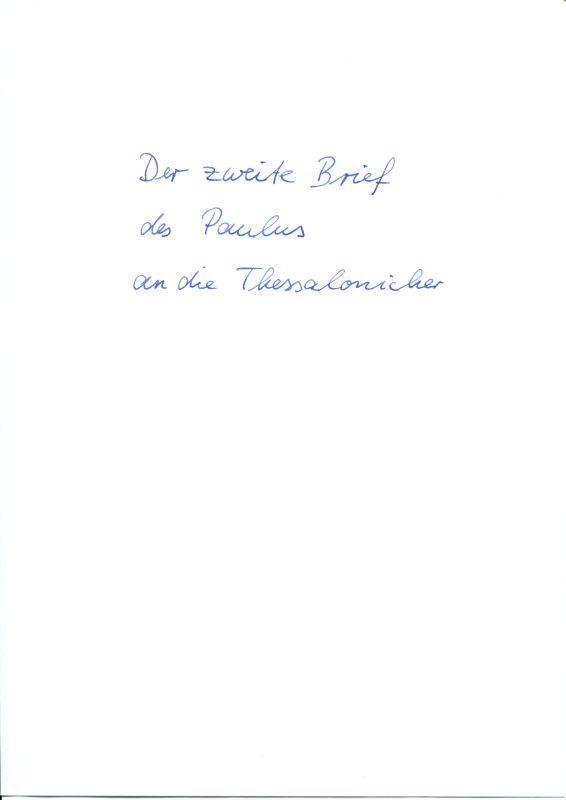 Der zweite Brief
des Paulus
an die Thessalonicher